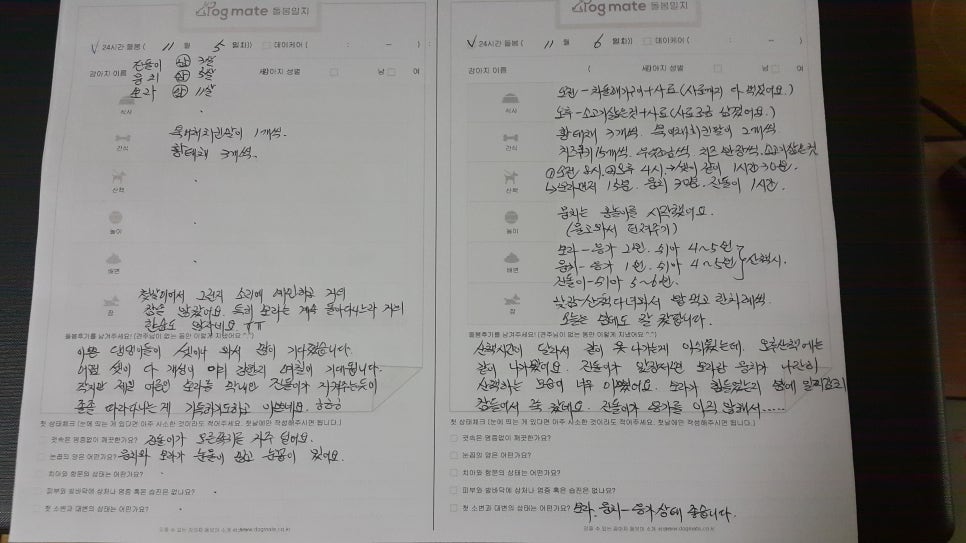 Dogmate 돌봄일지
24시간 돌봄 ( 11 월 5 일차)) 데이케어 ( : - ) :
강아지 이름 진돌이 3살 강아지 성별 남 여
뭉치 5살
보라 11살
식사
간식 북어채치킨말이 1개씩.
황태채 3개씩.
산책
놀이
배변
첫날이어서 그런지 소리에 예민하고 거의
잠 잠을 않잤어요. 특히 보라는 계속 돌아다니느라 거의
한숨도 않자네요 ㅠㅠ
돌봄후기를 남겨주세요! (견주님이 없는 동안 이렇게 지냈어요 ^^)
이쁜 댕댕이들이 셋이나 와서 많이 기다렸습니다.
셋이 다 개성이
졸졸 따라다니는 게 기특하기도하고 이쁘네요. ㅎㅎㅎ
첫 상태체크 (눈에 띄는 게 있다면 아주 사소한 것이라도 적어주세요. 첫날에만 작성해주시면 됩니다.)
귓속은 염증없이 깨끗한가요? 진돌이가 오른쪽귀를 자주 털어요.
눈꼽의 양은 어떤가요? 뭉치와 보라가 눈물이 있고 눈꼽이 있어요.
치아와 항문의 상태는 어떤가요?
피부와 발바닥에 상처나 염증 혹은 습진은 없나요?
첫 소변과 대변의 상태는 어떤가요?
믿을 수 있는 강아지 돌보미 소개 서비스 www.dogmate.co.kr
Dogmate 돌봄일지
24시간 돌봄 ( 11 월 6 일차)) 데이케어 ( : - )
강아지 이름 ( 강아지 성별 남 여
오전 - + 사료 (사료까지 다 먹었어요.)
식사 오후 - 소고기삶은것 + 사료 (사료 조금 남겼어요.)
황태채 3개씩. 북어채치킨말이 2개씩.
간식 치즈 반장씩. 소고기삶은것
① 오전 8시. ② 오후 4시. → 셋이 같이 1시간 30분.
산책 ↳ 보라먼저 15분. 뭉치 30분. 진돌이 1시간.
뭉치는 공놀이를 시작했어요.
놀이 (물고와서 던져주기)
보라 - 응가 2번. 쉬아 4~5번
배변 뭉치 - 응가 1번. 쉬아 4~5번 } 산책시.
진돌이 - 쉬아 5~6번.
낮잠 - 산책 다녀와서 밥 먹고 한차례씩.
잠 오늘은 밤에도 잘 잤답니다.
돌봄후기를 남겨주세요! (견주님이 없는 동안 이렇게 지냈어요 ^^)
산책시간이 달라서 같이 못 나가는게 아쉬웠는데, 오후산책에는
같이 나가봤어요. 진돌이가 앞장서면 보라랑 뭉치가 나란히
산책하는 모습이 너무 이뻤어요. 보라가 힘들었는지 밤에 일찌감치
잠들어서 푹 잤네요. 진돌이가 응가를 아직 않해서......
첫 상태체크 (눈에 띄는 게 있다면 아주 사소한 것이라도 적어주세요. 첫날에만 작성해주시면 됩니다.)
귓속은 염증없이 깨끗한가요?
눈꼽의 양은 어떤가요?
치아와 항문의 상태는 어떤가요?
피부와 발바닥에 상처나 염증 혹은 습진은 없나요?
첫 소변과 대변의 상태는 어떤가요? 보라, 뭉치 - 응가상태 좋습니다.
믿을 수 있는 강아지 돌보미 소개 서비스 www.dogmate.co.kr